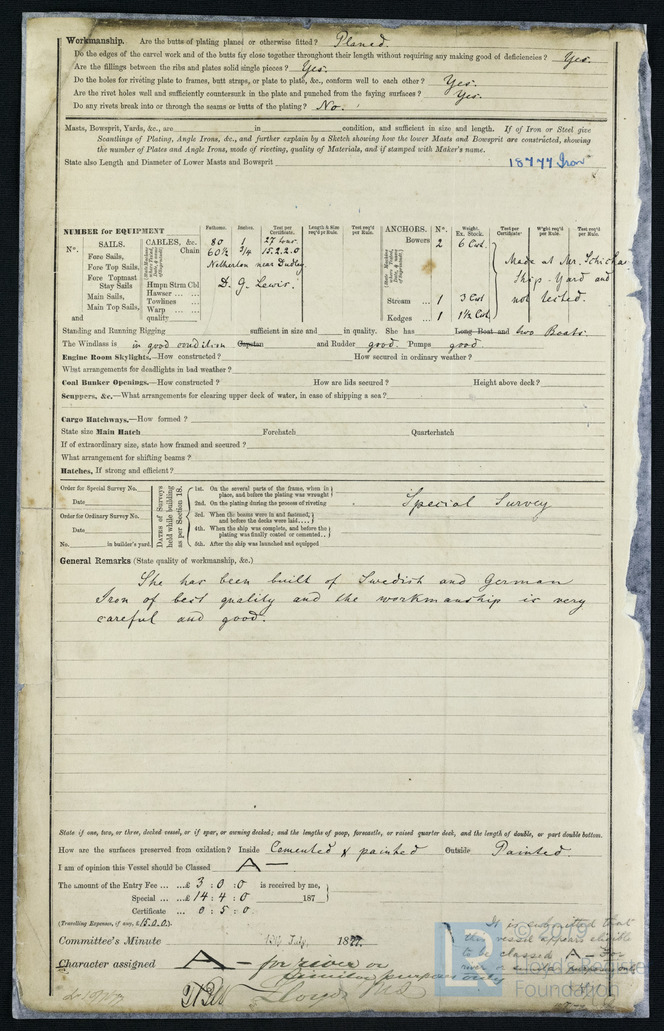 Workmanship. Are the butts of plating planed or otherwise fitted? Planed.
Do the edges of the carvel work and of the butts fay close together throughout their length without requiring any making good of deficiencies? Yes.
Are the fillings between the ribs and plates solid single pieces? Yes.
Do the holes for riveting plate to frames, butt straps, or plate to plate, &c., conform well to each other? Yes.
Are the rivet holes well and sufficiently countersunk in the plate and punched from the faying surfaces? Yes.
Do any rivets break into or through the seams or butts of the plating? No.
Masts, Bowsprit, Yards, &c., are in condition, and sufficient in size and length. If of Iron or Steel give
Scantlings of Plating, Angle Irons, &c., and further explain by a Sketch showing how the lower Masts and Bowsprit are constructed, showing
the number of Plates and Angle Irons, mode of riveting, quality of Materials, and if stamped with Maker's name.
State also Length and Diameter of Lower Masts and Bowsprit 18777 Iron
NUMBER for EQUIPMENT
Fathoms. Inches. Test per Certificate. Length & Size req'd pr Rule. Test req'd pr Rule.
ANCHORS. No. Weight. Ex. Stock. Test per Certificate. W'ght req'd per Rule. Test req'd per Rule.
No. SAILS. CABLES, &c.
Chain 80 1 27 tons.
60½ 3/4 15.2.2.0
Bowers 2 6 Cwt.
Fore Sails,
Fore Top Sails,
Fore Topmast
Stay Sails
Main Sails,
Main Top Sails,
and
Netherton near Dudley
Hmpn Strm Cbl D. G. Lewis.
Hawser
Towlines
Warp
quality
Made at Mr.
Ship Yard and
not tested.
Stream 1 3 Cwt
Kedges 1 1½ Cwt
Standing and Running Rigging sufficient in size and in quality. She has Long Boat and two Boats
The Windlass is in good condition Capstan and Rudder good. Pumps good.
Engine Room Skylights.—How constructed? How secured in ordinary weather?
What arrangements for deadlights in bad weather?
Coal Bunker Openings.—How constructed? How are lids secured? Height above deck?
Scuppers, &c.—What arrangements for clearing upper deck of water, in case of shipping a sea?
Cargo Hatchways.—How formed?
State size Main Hatch Forehatch Quarterhatch
If of extraordinary size, state how framed and secured?
What arrangement for shifting beams?
Hatches, If strong and efficient?
Order for Special Survey No.
Date
Order for Ordinary Survey No.
Date
No. in builder's yard.
DATES of Surveys held while building as per Section 18.
1st. On the several parts of the frame, when in place, and before the plating was wrought
2nd. On the plating during the process of riveting
3rd. When the beams were in and fastened, and before the decks were laid....
4th. When the ship was complete, and before the plating was finally coated or cemented..
5th. After the ship was launched and equipped
Special Survey
General Remarks (State quality of workmanship, &c.)
She has been built of Swedish and German
Iron of best quality and the workmanship is very
careful and good.
State if one, two, or three, decked vessel, or if spar, or awning decked; and the lengths of poop, forecastle, or raised quarter deck, and the length of double, or part double bottom.
How are the surfaces preserved from oxidation? Inside Cemented & painted Outside Painted.
I am of opinion this Vessel should be Classed A —
The amount of the Entry Fee ... £ 3 : 0 : 0 is received by me,
Special ... £ 14 : 4 : 0 187
Certificate ... 0 : 5 : 0
(Travelling Expenses, if any, £ 15.0.0.)
Committee's Minute July, 1877.
Character assigned A — for river or
purposes only
Lloyds
It is submitted that
this vessel appears eligible
to be classed A — for
river
© 2019
Lloyd's Register
Foundation